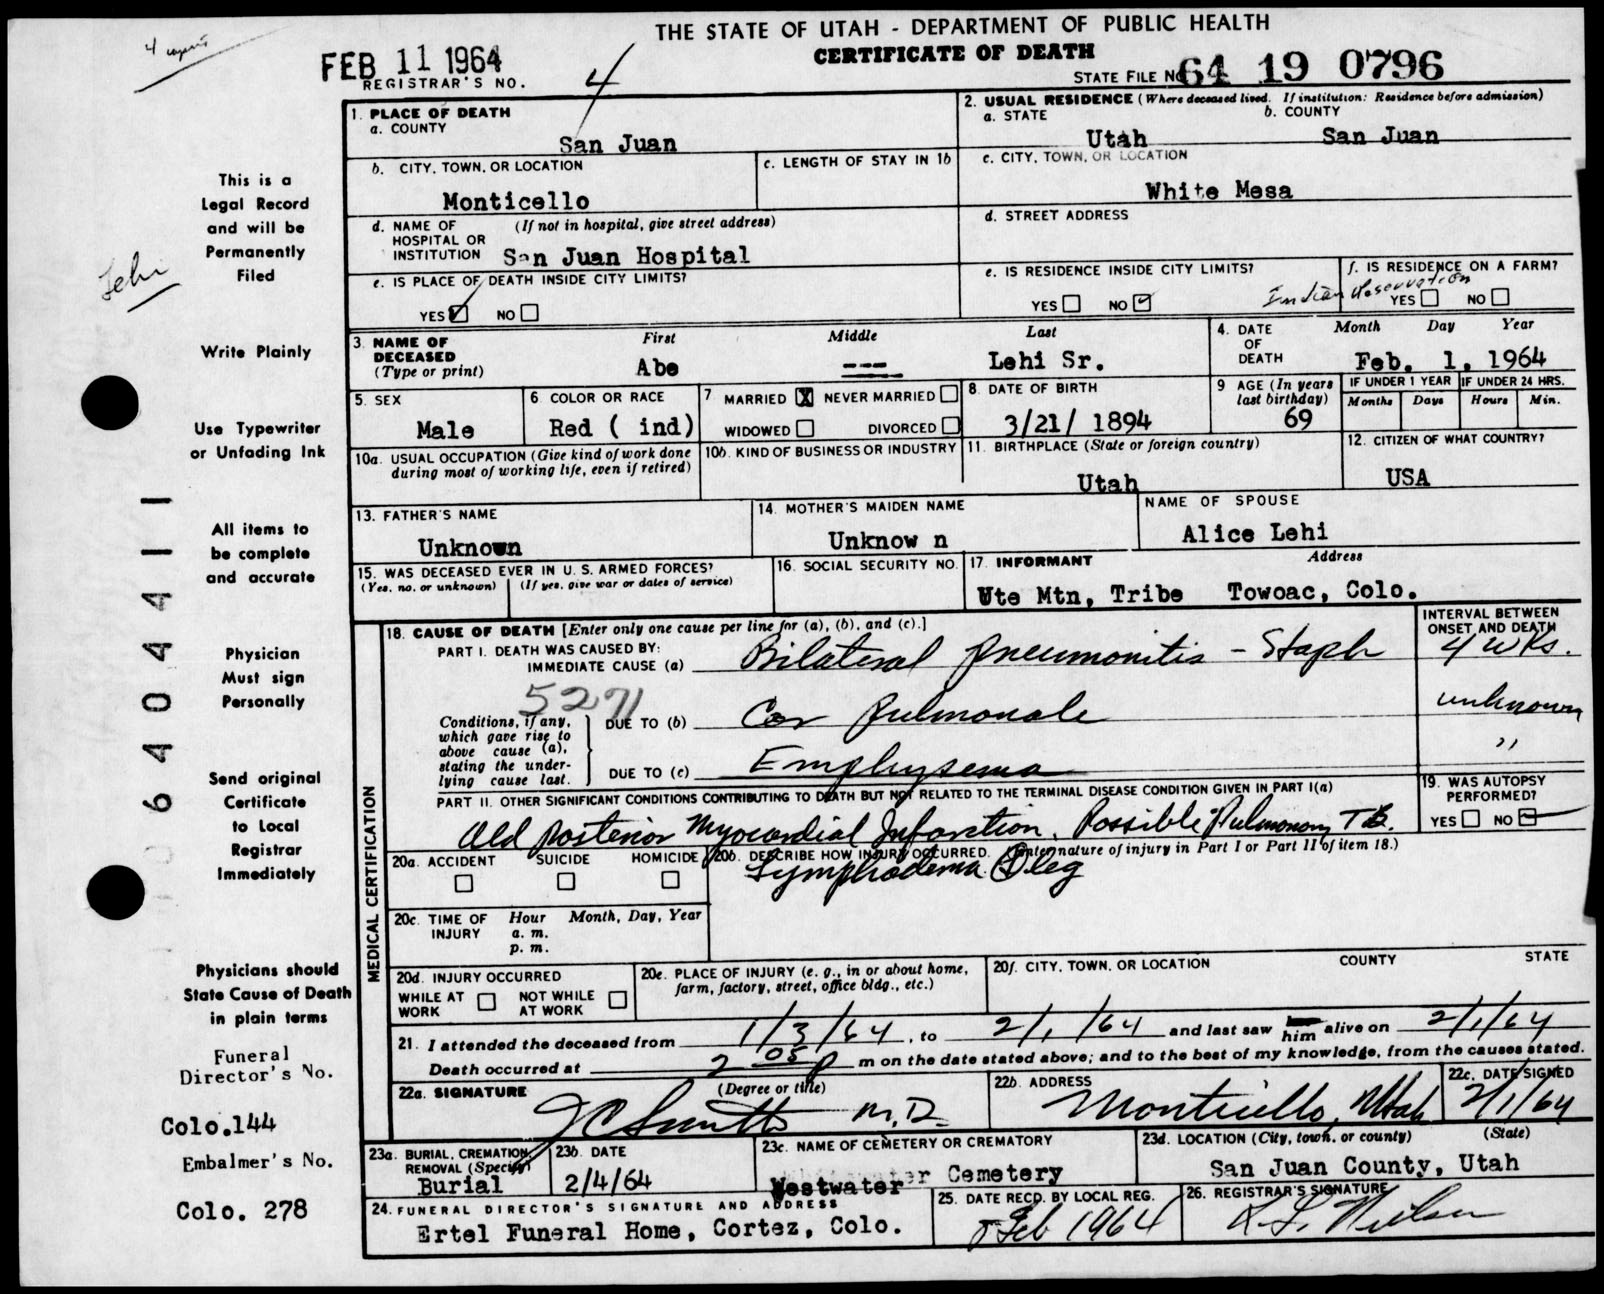 4 copies
THE STATE OF UTAH - DEPARTMENT OF PUBLIC HEALTH
CERTIFICATE OF DEATH
FEB 11 1964
REGISTRAR'S NO. 4
STATE FILE NO. 64 19 0796
1. PLACE OF DEATH
a. COUNTY
San Juan
2. USUAL RESIDENCE (Where deceased lived. If institution: Residence before admission)
a. STATE b. COUNTY
Utah San Juan
b. CITY, TOWN, OR LOCATION
Monticello
c. LENGTH OF STAY IN 1b
c. CITY, TOWN, OR LOCATION
White Mesa
d. NAME OF (If not in hospital, give street address)
HOSPITAL OR
INSTITUTION San Juan Hospital
d. STREET ADDRESS
e. IS PLACE OF DEATH INSIDE CITY LIMITS?
YES NO
e. IS RESIDENCE INSIDE CITY LIMITS?
YES NO
f. IS RESIDENCE ON A FARM?
Indian Reservation
YES NO
3. NAME OF DECEASED (Type or print)
First Middle Last
Abe --- Lehi Sr.
4. DATE OF DEATH
Month Day Year
Feb. 1, 1964
5. SEX
Male
6. COLOR OR RACE
Red ( ind)
7 MARRIED X NEVER MARRIED
WIDOWED DIVORCED
8. DATE OF BIRTH
3/21/ 1894
9 AGE (In years last birthday)
69
IF UNDER 1 YEAR IF UNDER 24 HRS.
Months Days Hours Min.
10a. USUAL OCCUPATION (Give kind of work done
during most of working life, even if retired)
10b. KIND OF BUSINESS OR INDUSTRY
11. BIRTHPLACE (State or foreign country)
Utah
12. CITIZEN OF WHAT COUNTRY?
USA
13. FATHER'S NAME
Unknown
14. MOTHER'S MAIDEN NAME
Unknow n
NAME OF SPOUSE
Alice Lehi
15. WAS DECEASED EVER IN U. S. ARMED FORCES?
(Yes, no, or unknown) (If yes, give war or dates of service)
16. SOCIAL SECURITY NO.
17. INFORMANT Address
Ute Mtn, Tribe Towoac, Colo.
MEDICAL CERTIFICATION
18. CAUSE OF DEATH [Enter only one cause per line for (a), (b), and (c).]
INTERVAL BETWEEN
ONSET AND DEATH
PART I. DEATH WAS CAUSED BY:
IMMEDIATE CAUSE (a) Bilateral pneumonitis - Staph 4 wks.
5271
Conditions, if any,
which gave rise to
above cause (a),
stating the under-
lying cause last.
DUE TO (b) Cor Pulmonale unknown
DUE TO (c) Emphysema "
PART II. OTHER SIGNIFICANT CONDITIONS CONTRIBUTING TO DEATH BUT NOT RELATED TO THE TERMINAL DISEASE CONDITION GIVEN IN PART I(a)
Old Posterior Myocardial Infarction, Possible Pulmonary TB.
Lymphedema leg
19. WAS AUTOPSY
PERFORMED?
YES NO
20a. ACCIDENT SUICIDE HOMICIDE
20b. DESCRIBE HOW INJURY OCCURRED. (Enter nature of injury in Part I or Part II of item 18.)
20c. TIME OF INJURY
Hour Month, Day, Year
a. m.
p. m.
20d. INJURY OCCURRED
WHILE AT WORK NOT WHILE AT WORK
20e. PLACE OF INJURY (e. g., in or about home,
farm, factory, street, office bldg., etc.)
20f. CITY, TOWN, OR LOCATION COUNTY STATE
21. I attended the deceased from 1/3/64, to 2/1/64 and last saw him alive on 2/1/64
Death occurred at 2 05 p m on the date stated above; and to the best of my knowledge, from the causes stated.
22a. SIGNATURE (Degree or title)
J C Smith M.D.
22b. ADDRESS
Monticello, Utah
22c. DATE SIGNED
2/1/64
23a. BURIAL, CREMATION,
REMOVAL (Specify)
Burial
23b. DATE
2/4/64
23c. NAME OF CEMETERY OR CREMATORY
Westwater Cemetery
23d. LOCATION (City, town, or county) (State)
San Juan County, Utah
24. FUNERAL DIRECTOR'S SIGNATURE AND ADDRESS
Ertel Funeral Home, Cortez, Colo.
25. DATE RECD. BY LOCAL REG.
Feb 1964
26. REGISTRAR'S SIGNATURE
This is a
Legal Record
and will be
Permanently
Filed
Lehi
Write Plainly
Use Typewriter
or Unfading Ink
All items to
be complete
and accurate
Physician
Must sign
Personally
Send original
Certificate
to Local
Registrar
Immediately
Physicians should
State Cause of Death
in plain terms
Funeral
Director's No.
Colo.144
Embalmer's No.
Colo. 278